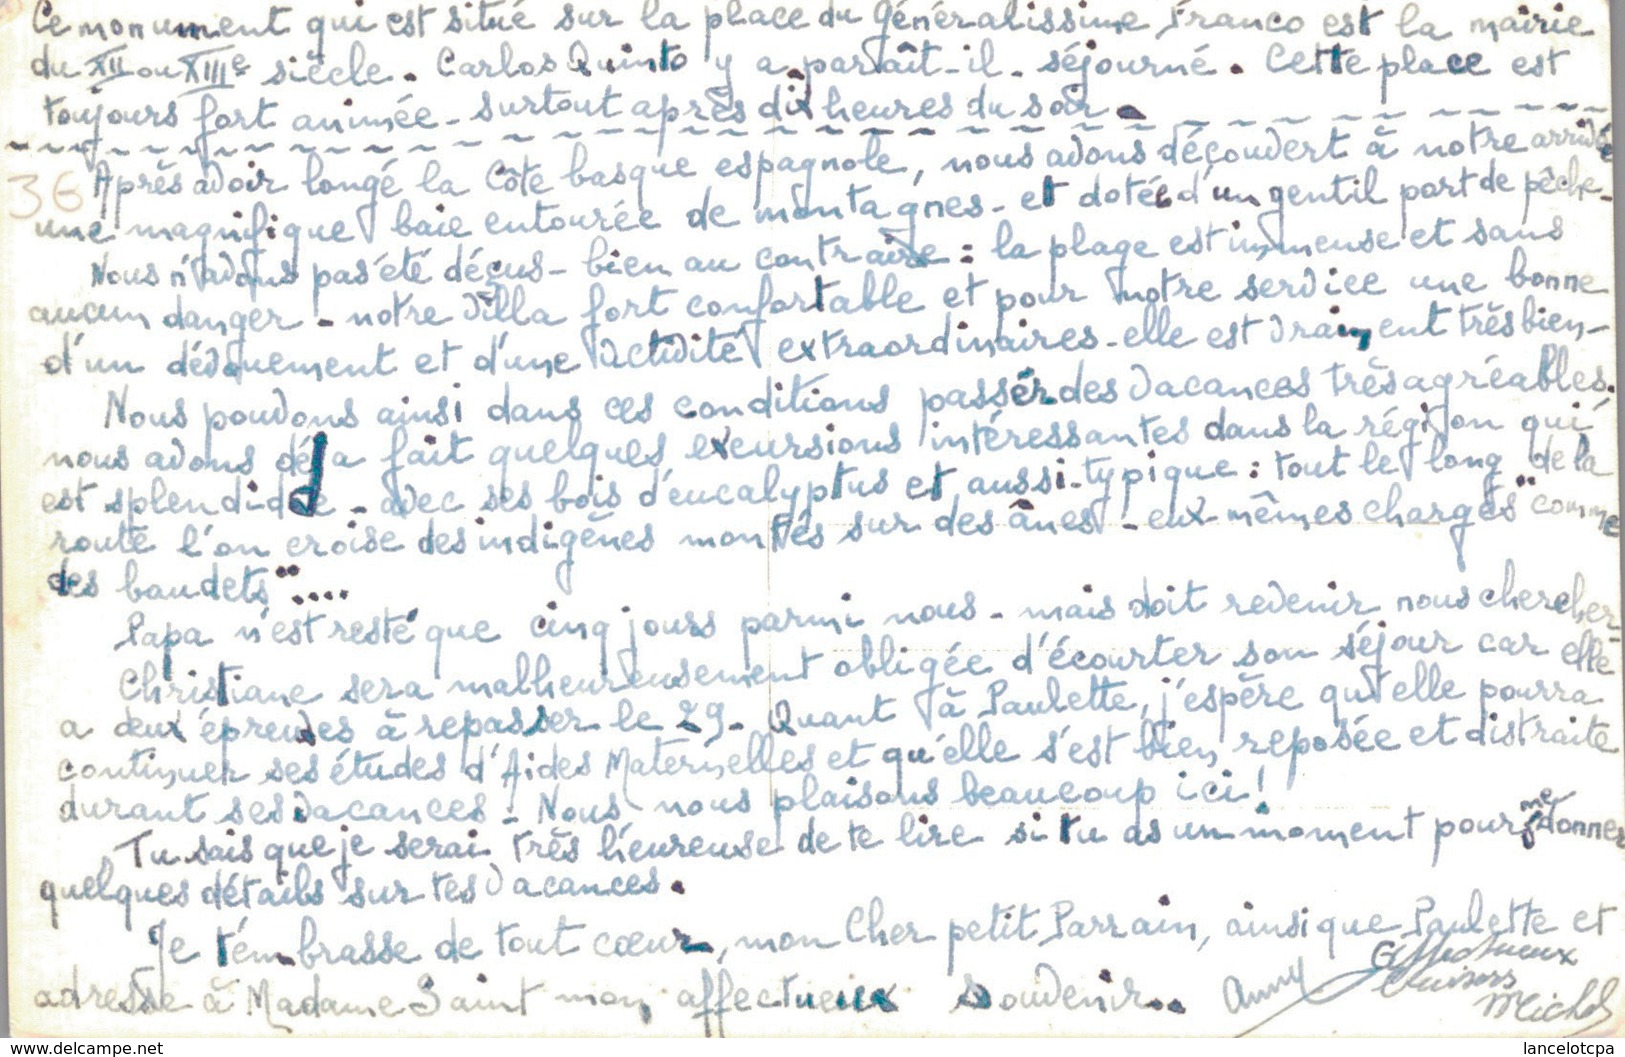 Ce monument qui est situé sur la place du Généralissime Franco est la mairie
du XII ou XIIIe siècle. Carlos Quinto y a paraît-il - séjourné. Cette place est
toujours fort animée - surtout après dix heures du soir.
36
Après avoir longé la Côte basque espagnole, nous avons découvert à notre arrivée
une magnifique baie entourée de montagnes - et dotée d'un gentil port de pêche -
Nous n'avons pas été déçus - bien au contraire : la plage est immense et sans
aucun danger - notre villa fort confortable et pour notre service une bonne
d'un dévouement et d'une activité extraordinaires - elle est vraiment très bien -
Nous pouvons ainsi dans ces conditions passer des vacances très agréables.
nous avons déjà fait quelques excursions intéressantes dans la région qui
est splendide - avec ses bois d'eucalyptus et aussi - typique : tout le long de la
route l'on croise des indigènes montés sur des ânes - eux mêmes chargés "comme
des baudets" ....
Papa n'est resté que cinq jours parmi nous - mais doit revenir nous chercher -
Christiane sera malheureusement obligée d'écourter son séjour car elle
a deux épreuves à repasser le 29 - Quant à Paulette, j'espère qu'elle pourra
continuer ses études d'Aides Maternelles et qu'elle s'est bien reposée et distraite
durant ses vacances - Nous, nous plaisons beaucoup ici !
Tu sais que je serai très heureuse de te lire si tu as un moment pour me donner
quelques détails sur tes vacances.
Je t'embrasse de tout cœur, mon Cher petit Parrain, ainsi que Paulette et
adresse à Madame Saint mon affectueux souvenir..
Anny
Affectueux
Michel
www.delcampe.net
lancelotcpa